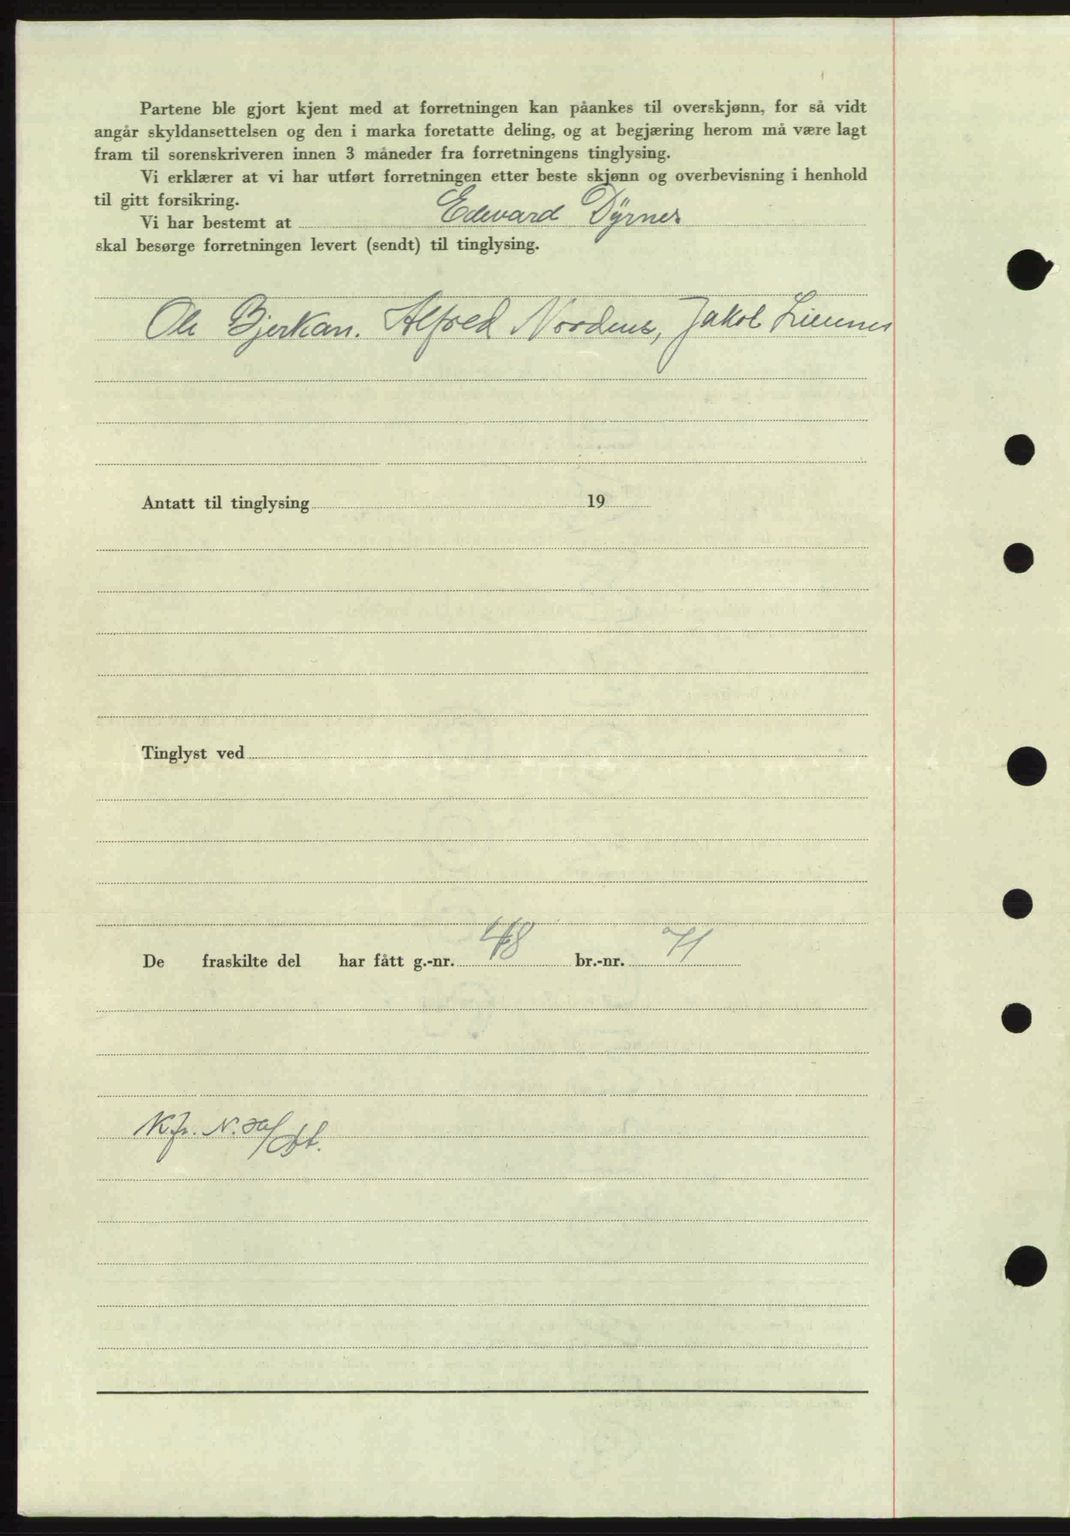 Partene ble gjort kjent med at forretningen kan påankes til overskjønn, for så vidt
angår skyldansettelsen og den i marka foretatte deling, og at begjæring herom må være lagt
fram til sorenskriveren innen 3 måneder fra forretningens tinglysing.
Vi erklærer at vi har utført forretningen etter beste skjønn og overbevisning i henhold
til gitt forsikring.
Vi har bestemt at Edevard Dyrnes
skal besørge forretningen levert (sendt) til tinglysing.
Ole Bjerkan. Alfred Nordnes, Jakob
Antatt til tinglysing 19
Tinglyst ved
De fraskilte del har fått g.-nr. 48 br.-nr. 71
Kfr. N.